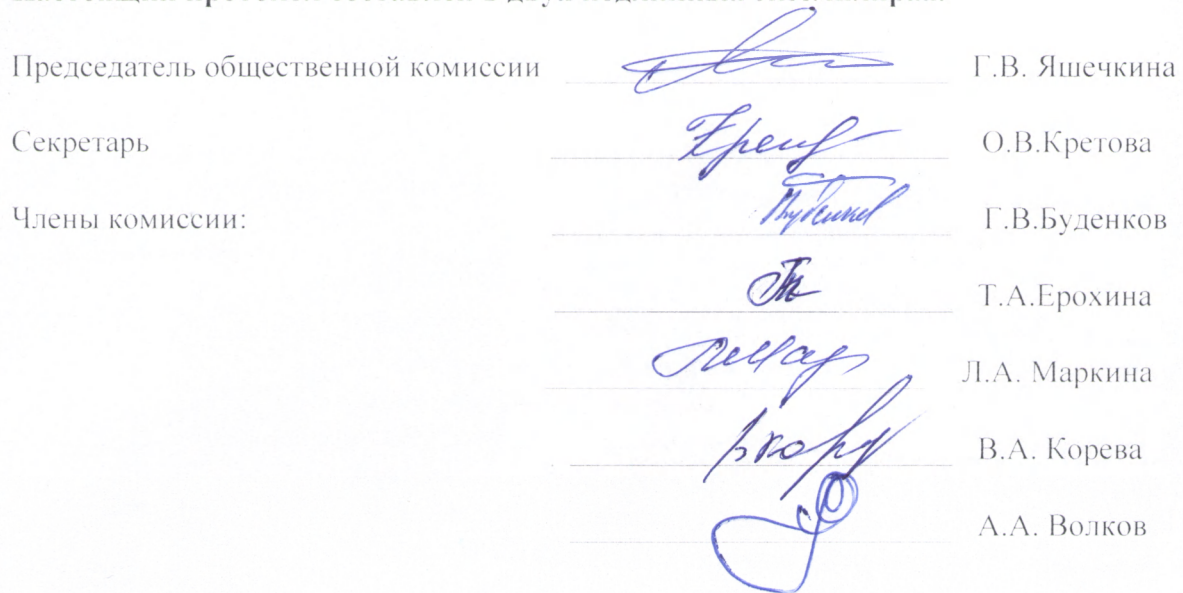 Председатель общественной комиссии Г.В. Яшечкина
Секретарь О.В.Кретова
Члены комиссии: Г.В.Буденков
Т.А.Ерохина
Л.А. Маркина
В.А. Корева
А.А. Волков